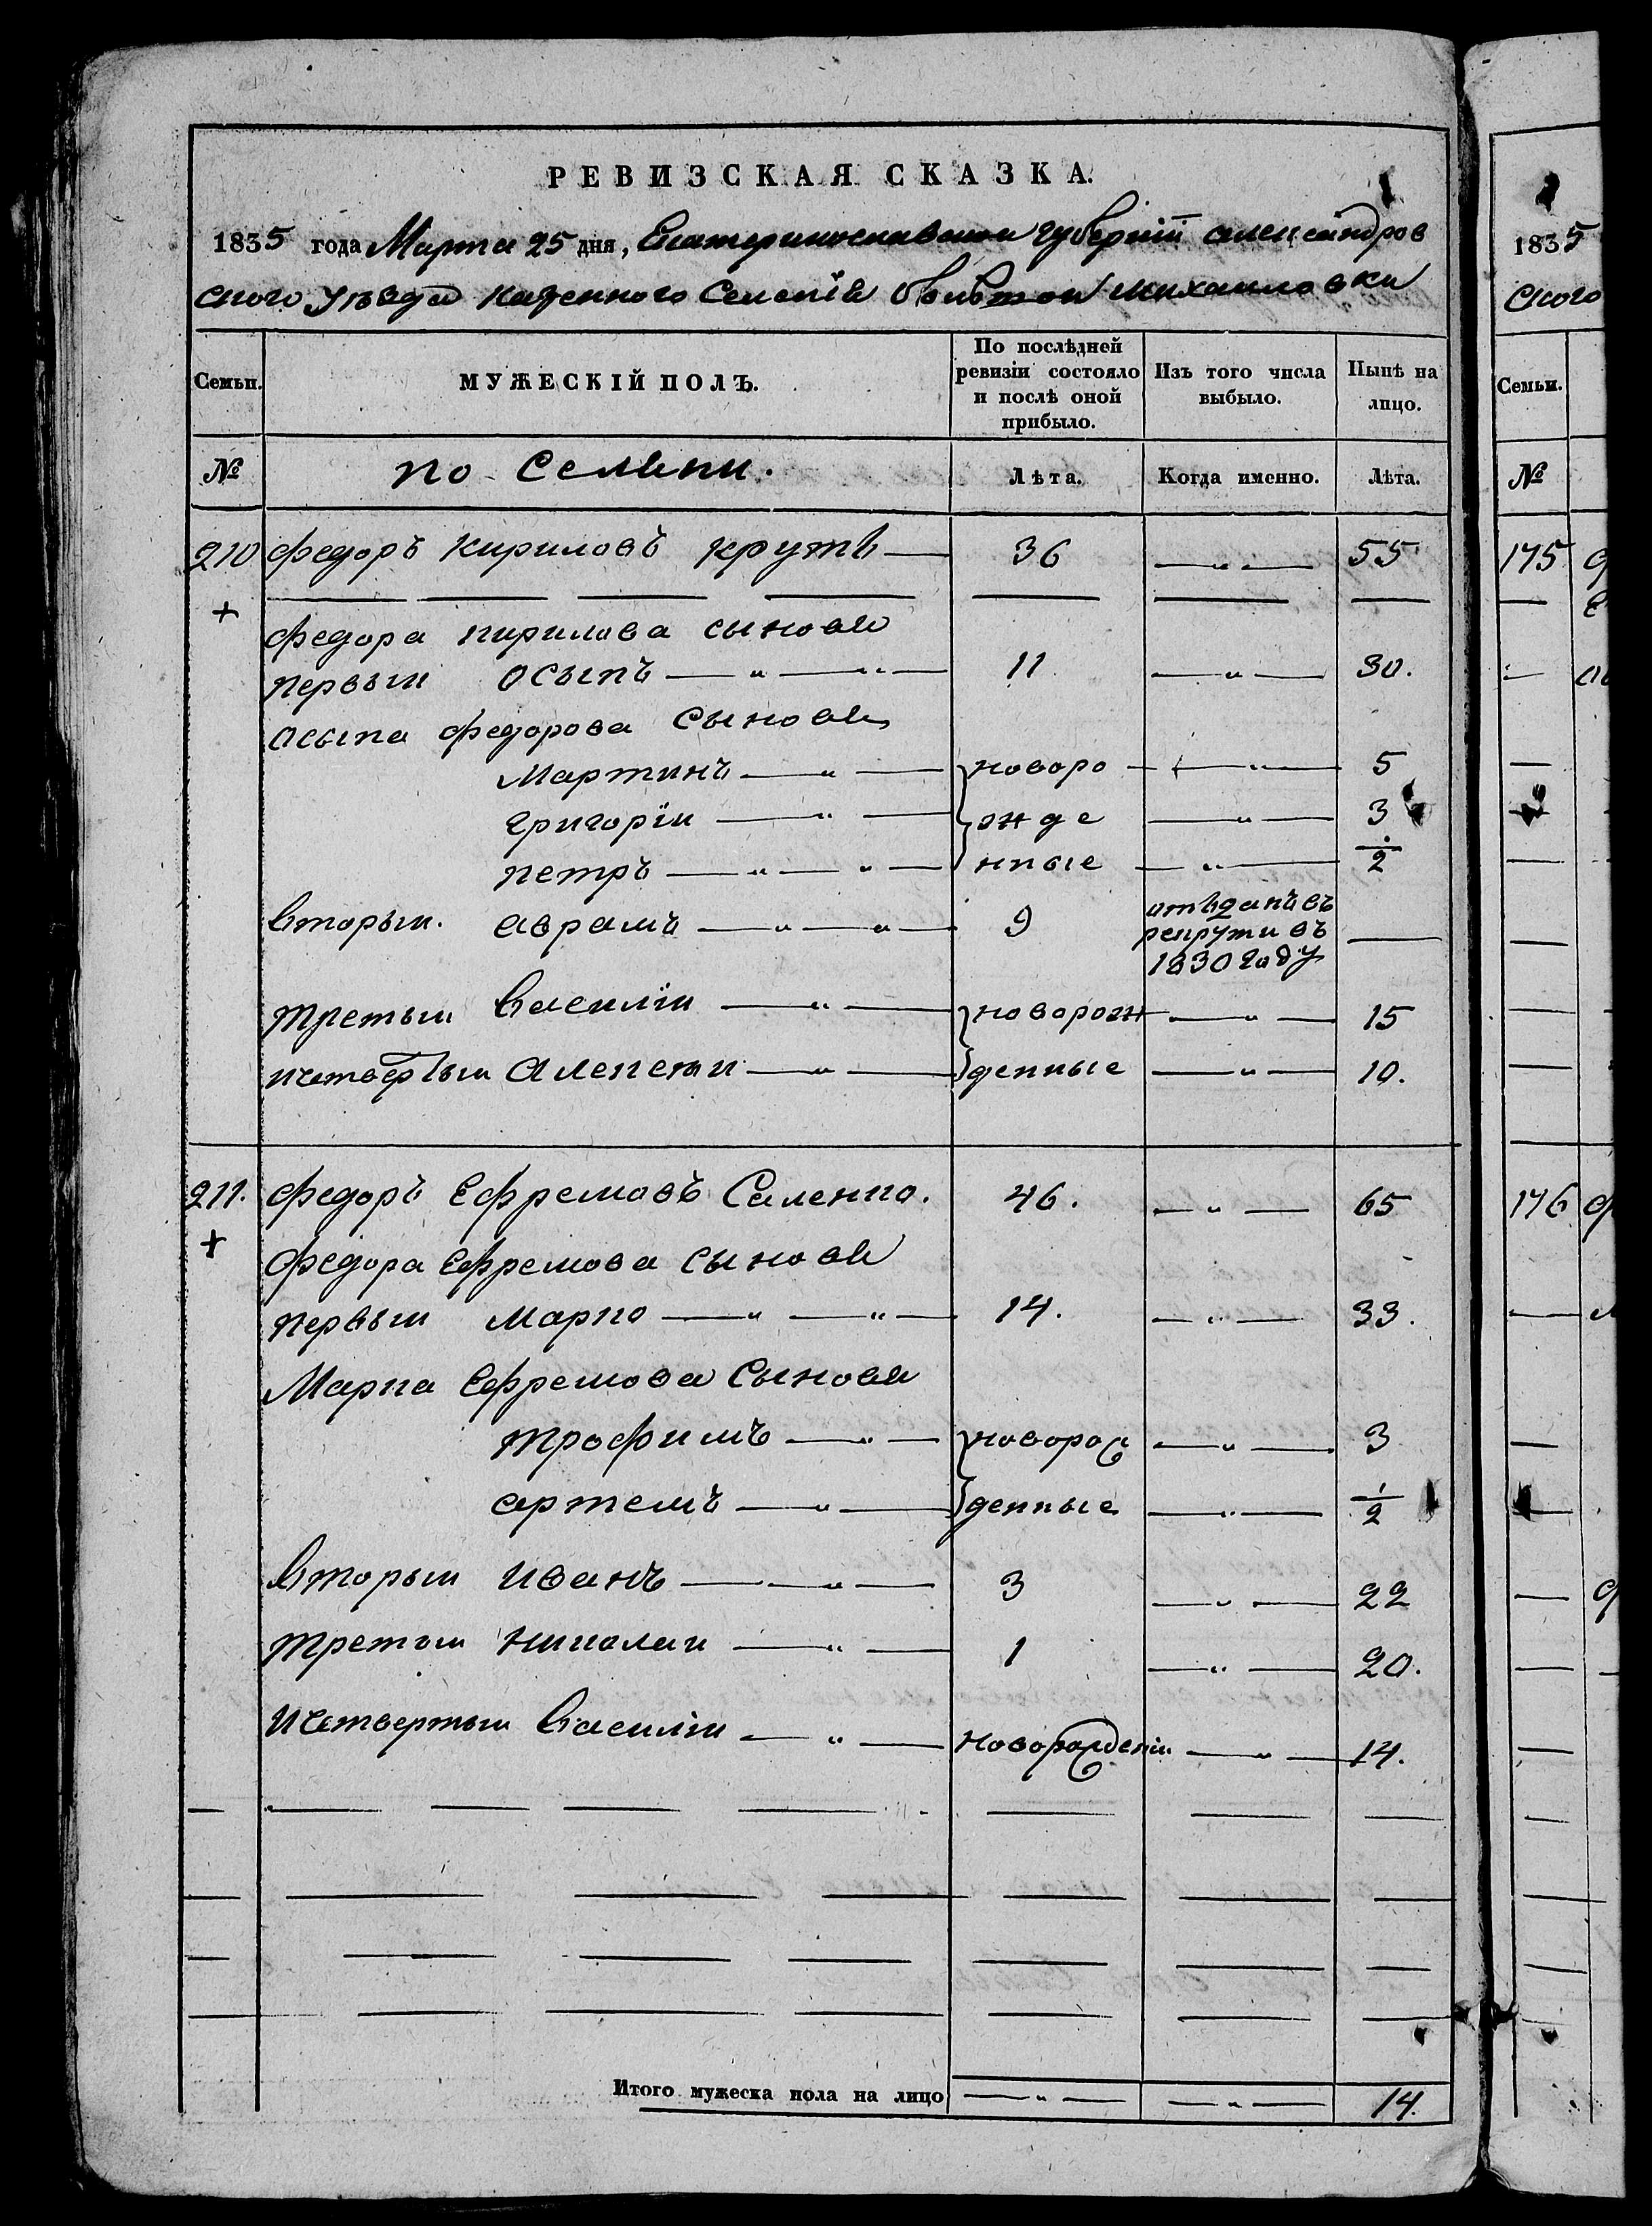 РЕВИЗСКАЯ СКАЗКА.
1835 года Марта 25 дня, Екатеринославской губернїи александров
ского уѣзда казенного Селенїя большой михайловки
Семьи. МУЖЕСКІЙ ПОЛЪ. По послѣдней ревизіи состояло и послѣ оной прибыло. Изъ того числа выбыло. Нынѣ на лицо.
№ по Семьи. Лѣта. Когда именно. Лѣта.
210 федоръ Кириловъ круть — 36 — „ — 55
+
федора кирилова сыновя
первый осыпъ — „ — „ — 11 — „ — 30.
осыпа федорова Сыновя
Мартинъ — „ — новоро — „ — 5
григорїй — „ — жде — „ — 3
петръ — „ — „ — нные — „ — 1/2
вторый. аврамъ — „ — „ — 9 отъданъ въ рекрути въ 1830 году —
третый Василїй — „ — новорож — „ — 15
ичетвертый алексей — „ — денные — „ — 10.
211. федоръ Ефремовъ Саленко. 46. — „ — 65
+
федора Ефремова сыновя
первый марко — „ — „ — 14. — „ — 33.
Марка Ефремова Сыновя
трофимъ — „ — новорож — „ — 3
артемъ — „ — денные — „ — 1/2
вторый иванъ — „ — 3 — „ — 22
третый николай — „ — 1 — „ — 20.
ичетвертый Василїй — „ — новорожденїй — „ — 14.
Итого мужеска пола на лицо — „ — — „ — 14.
1835
ского
Семьи.
№
175
176